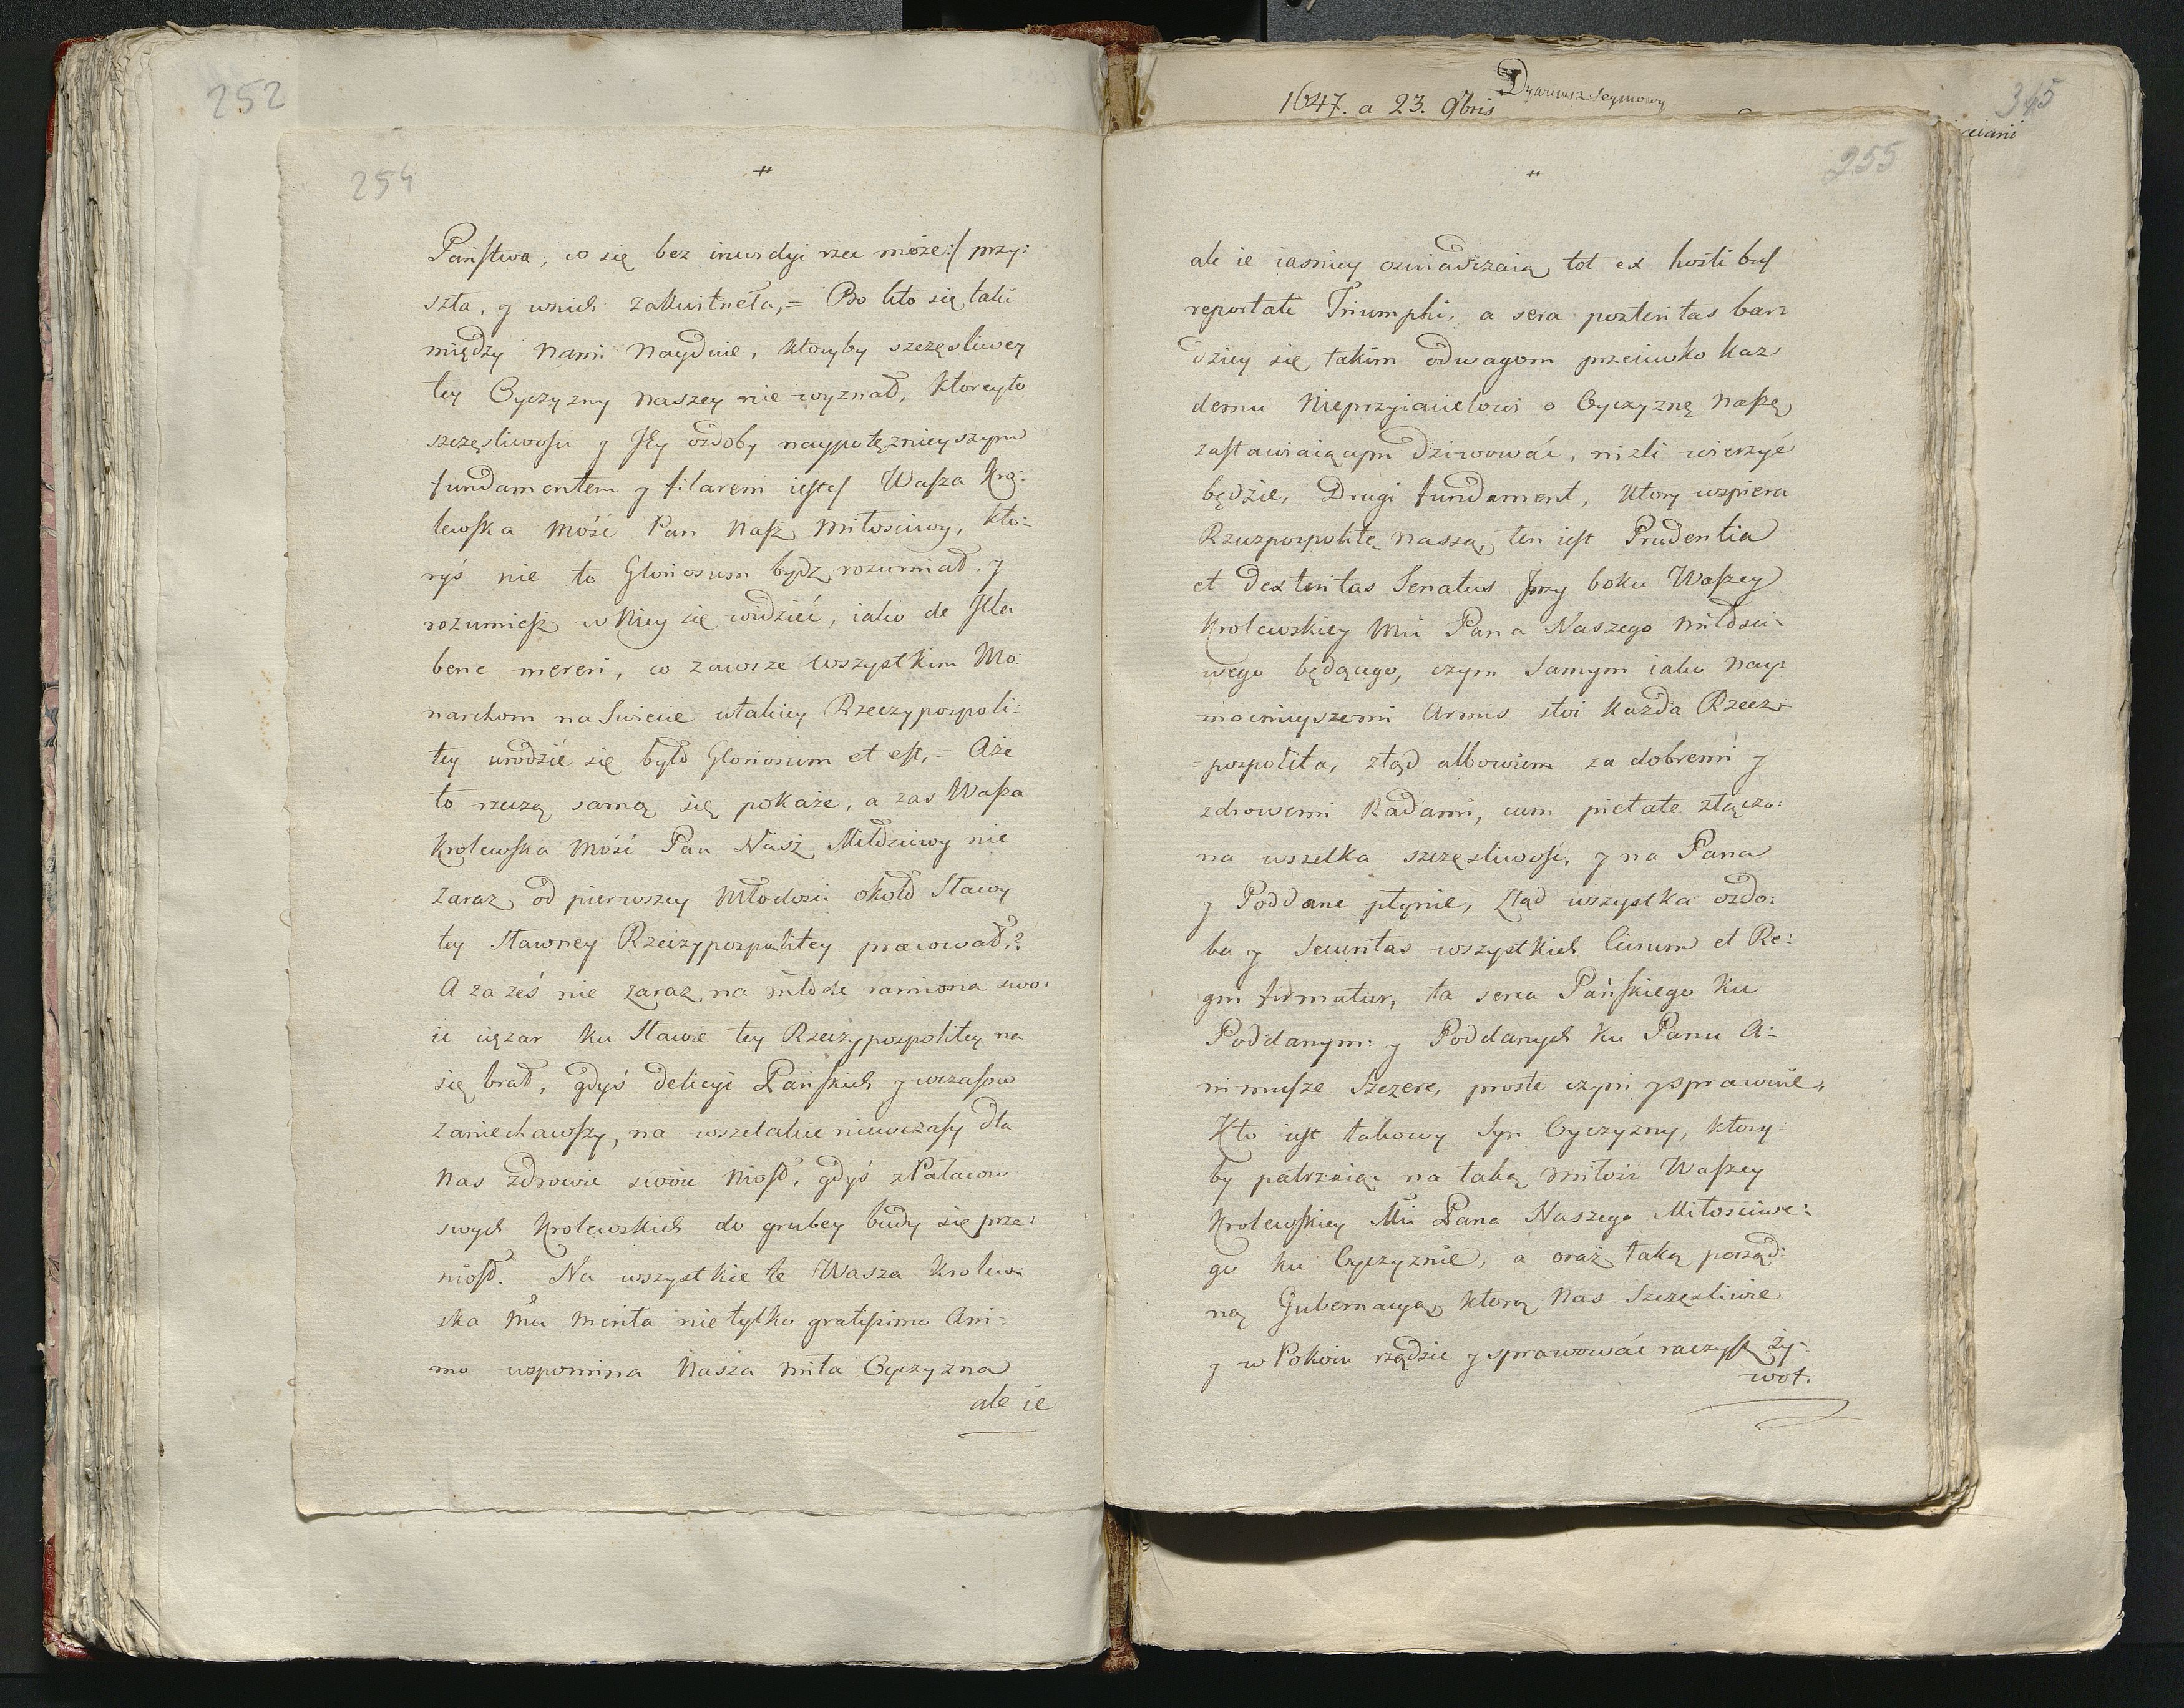 252
254
#
Państwa, co się bez inwidyi rzec może:/ przy:
szła, y wnich zakwitneła,= Bo kto się taki
między nami naydzie, ktoryby szczęsliwey
tey Oyczyzny naszey nie wyznał, ktoreyto
szczęsliwosci y Jey ozdoby naypotęznieyszym
fundamentem y filarem iesteś Wasza Kro:
lewska Mość Pan Nasz Miłosciwy, kto=
ryś nie to Gloriosum bydz rozumiał y
rozumiesz w Niey się widzieć, iako de Illa
bene mereri, co zawsze wszystkim Mo:
narchom na Swiecie wtakiey Rzeczypospoli:
tey urodzić się było Gloriosum et est,= Aże
to rzeczą samą się pokaże, a zas Wasza
Krolewska Mość Pan Nasz Miłosciwy nie
zaraz od pierwszey Młodosci około Sławy
tey Sławney Rzeczypospolitey pracował,?
A zażeś nie zaraz na młode ramiona swo:
ie cięzar ku Sławie tey Rzeczypospolitey na
się brał, gdyś delicyi Pańskich y wczasow
zaniechawszy, na wszelakie niewczasy dla
Nas Zdrowie swoie niosł, gdyś z Pałacow
swych Krolewskich do grubey budy się prze:
niosł. Na wszystkie te Wasza Krolew:
ska Mci merita nie tylko gratissimo Ani:
mo wspomina Nasza miła Oyczyzna
ale ie
1647. a 23. 9bris
Dyariusz Seymowy
345
255
"
ale ie iasniey oswiadczaią tot ex hostibus
reportati Triumphi, a sera posteritas bar=
dziey się takim odwagom przeciwko kaz
demu Nieprzyiacielowi o Oyczyznę naszę
zastawiaiącym dziwować, nizli wierzyć
będzie, Drugi fundament, ktory wspiera
Rzeczpospolitę naszą, ten iest Prudentia
et dexteritas Senatus przy boku Waszey
Krolewskiey Mci Pana Naszego Miłosci=
wego będącego, czym Samym iako nay:
mocnieyszemi Armis stoi kazda Rzecz=
=pospolita, ztąd albowiem za dobremi y
zdrowemi Radami, cum pietate złączo:
na wszelka szczęsliwość, y na Pana
y Poddane płynie, Ztąd wszystka ozdo:
ba y Securitas wszystkich Civium et Re:
gni firmatur, ta serca Pańskiego ku
Poddanym: y Poddanych ku Panu A=
nimusze Szczere, proste czyni y sprawuie,
Kto iest takowy Syn Oyczyzny, ktory=
by patrzaiąc na taką miłość Waszey
Krolewskiey Mci Pana Naszego Miłosciwe:
go ku Oyczyznie, a oraz taką porząd:
ną Gubernacyą, ktorą Nas Szczęsliwie
y w Pokoiu rządzić y sprawować raczysz ży=
wot.